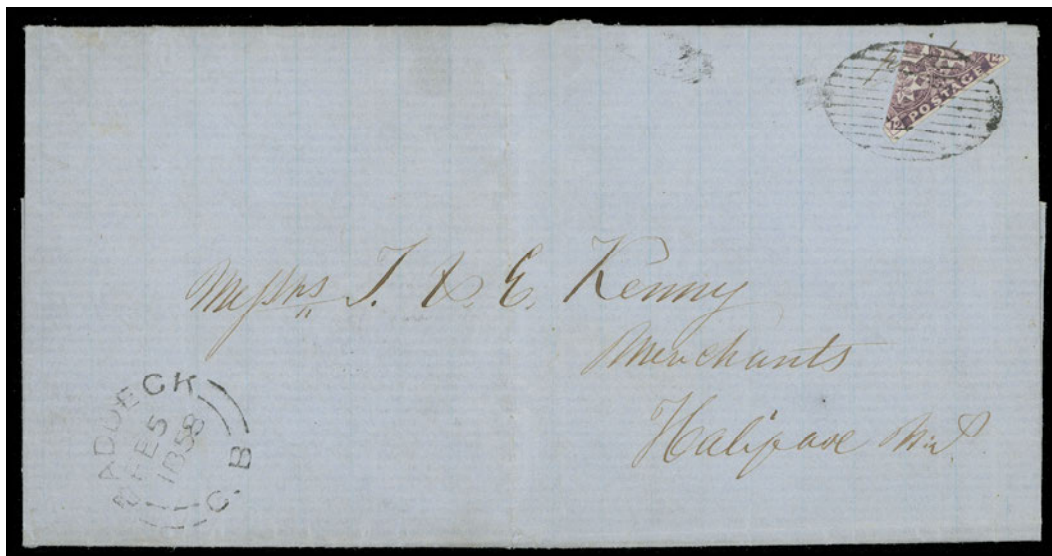 POSTAGE
Messrs. T. & E. Kenny
Merchants
Halifax N.S.
BADDECK
FE 5
1858
C. B